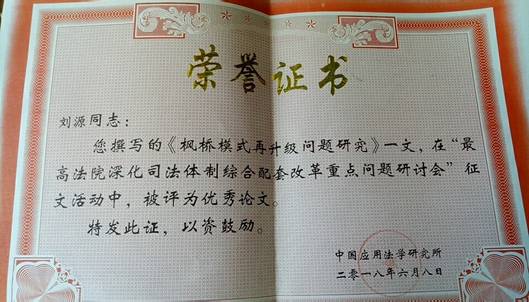 荣誉证书
刘源同志：
您撰写的《枫桥模式再升级问题研究》一文，在“最
高法院深化司法体制综合配套改革重点问题研讨会”征
文活动中，被评为优秀论文。
特发此证，以资鼓励。
中国应用法学研究所
二零一八年六月八日